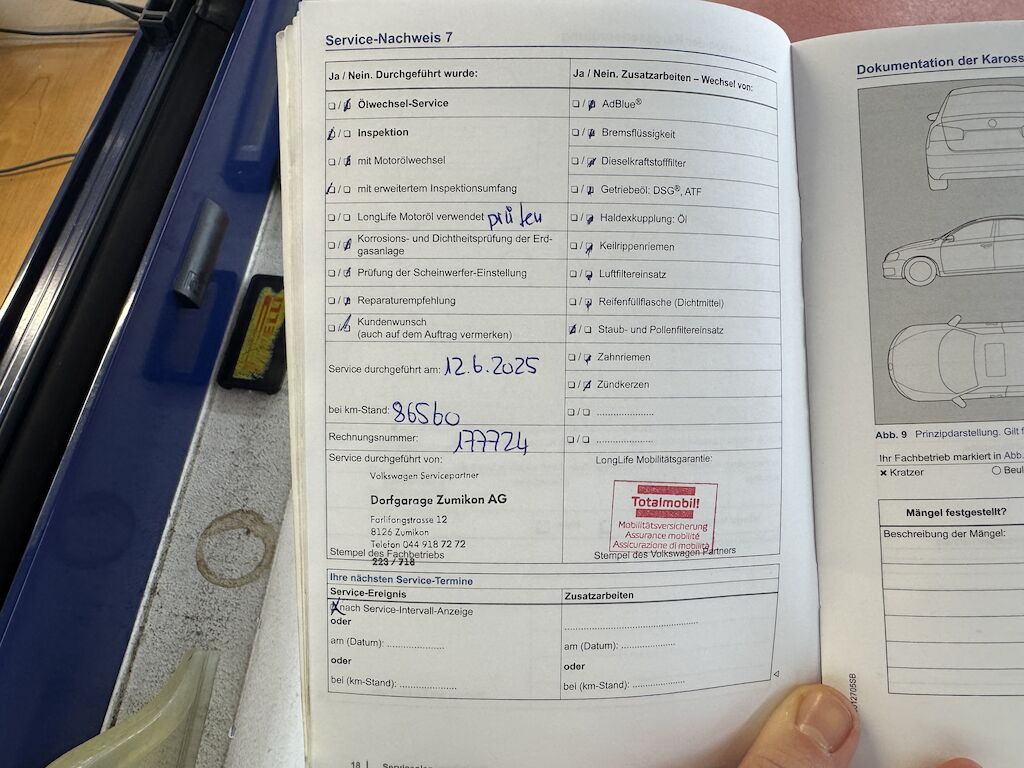 Service-Nachweis 7
Ja / Nein. Durchgeführt wurde:
Ölwechsel-Service
Inspektion
mit Motorölwechsel
mit erweitertem Inspektionsumfang
LongLife Motoröl verwendet prüfen
Korrosions- und Dichtheitsprüfung der Erd-
gasanlage
Prüfung der Scheinwerfer-Einstellung
Reparaturempfehlung
Kundenwunsch
(auch auf dem Auftrag vermerken)
Service durchgeführt am: 12.6.2025
bei km-Stand: 86560
Rechnungsnummer: 177724
Service durchgeführt von:
Volkswagen Servicepartner
Dorfgarage Zumikon AG
Farlifangstrasse 12
8126 Zumikon
Telefon 044 918 72 72
Stempel des Fachbetriebs
223 / 718
Ja / Nein. Zusatzarbeiten – Wechsel von:
AdBlue®
Bremsflüssigkeit
Dieselkraftstofffilter
Getriebeöl: DSG®, ATF
Haldexkupplung: Öl
Keilrippenriemen
Luftfiltereinsatz
Reifenfüllflasche (Dichtmittel)
Staub- und Pollenfiltereinsatz
Zahnriemen
Zündkerzen
LongLife Mobilitätsgarantie:
Totalmobil!
Mobilitätsversicherung
Assurance mobilité
Assicurazione di mobilità
Stempel des Volkswagen Partners
Ihre nächsten Service-Termine
Service-Ereignis
nach Service-Intervall-Anzeige
oder
am (Datum): ....................
oder
bei (km-Stand): ....................
Zusatzarbeiten
am (Datum): ....................
oder
bei (km-Stand): ....................
18
Dokumentation der Kaross
Abb. 9 Prinzipdarstellung. Gilt f
Ihr Fachbetrieb markiert in Abb.
× Kratzer
○ Beul
Mängel festgestellt?
Beschreibung der Mängel: